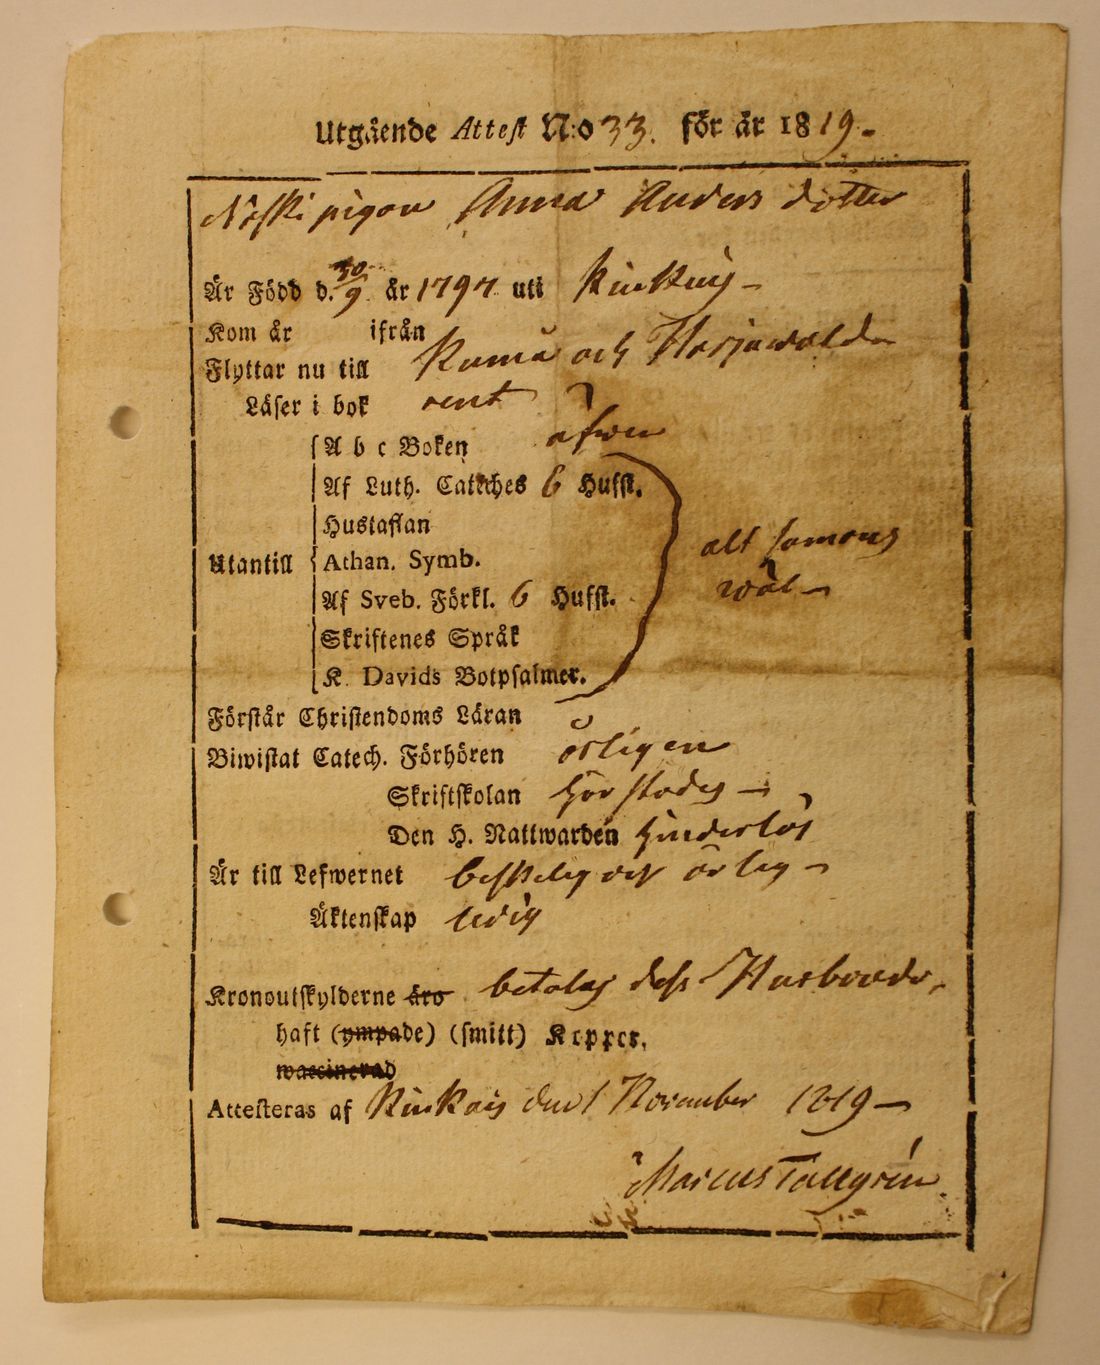 Utgående Attest N:o 33. för år 1819.
pigan Anna Anders dotter
Är Född d. 30/9 år 1797 uti Kiukais
Kom år ifrån
Flyttar nu till Kumå och Harjawalda
Läser i bok rent
A b c Boken äfwen
Af Luth. Catéches 6 Hufst.
Hustaflan
Utantill Athan. Symb. alt samons
Af Sveb. Förkl. 6 Hufst. wäl
Skriftenes Språk
K. Davids Botpsalmer.
Förstår Christendoms Läran
Biwistat Catech. Förhören årligen
Skriftskolan härstädes
Den H. Nattwarden hinderlös
Är till Lefwernet beskelig och ärlig
Äktenskap ledig
Kronoutskylderne äro betalas dess Husbonde
haft (ympade) (smitt) Kopper.
waccinerad
Attesteras af Kiukais den 1 November 1819
Marcus Tallgrén